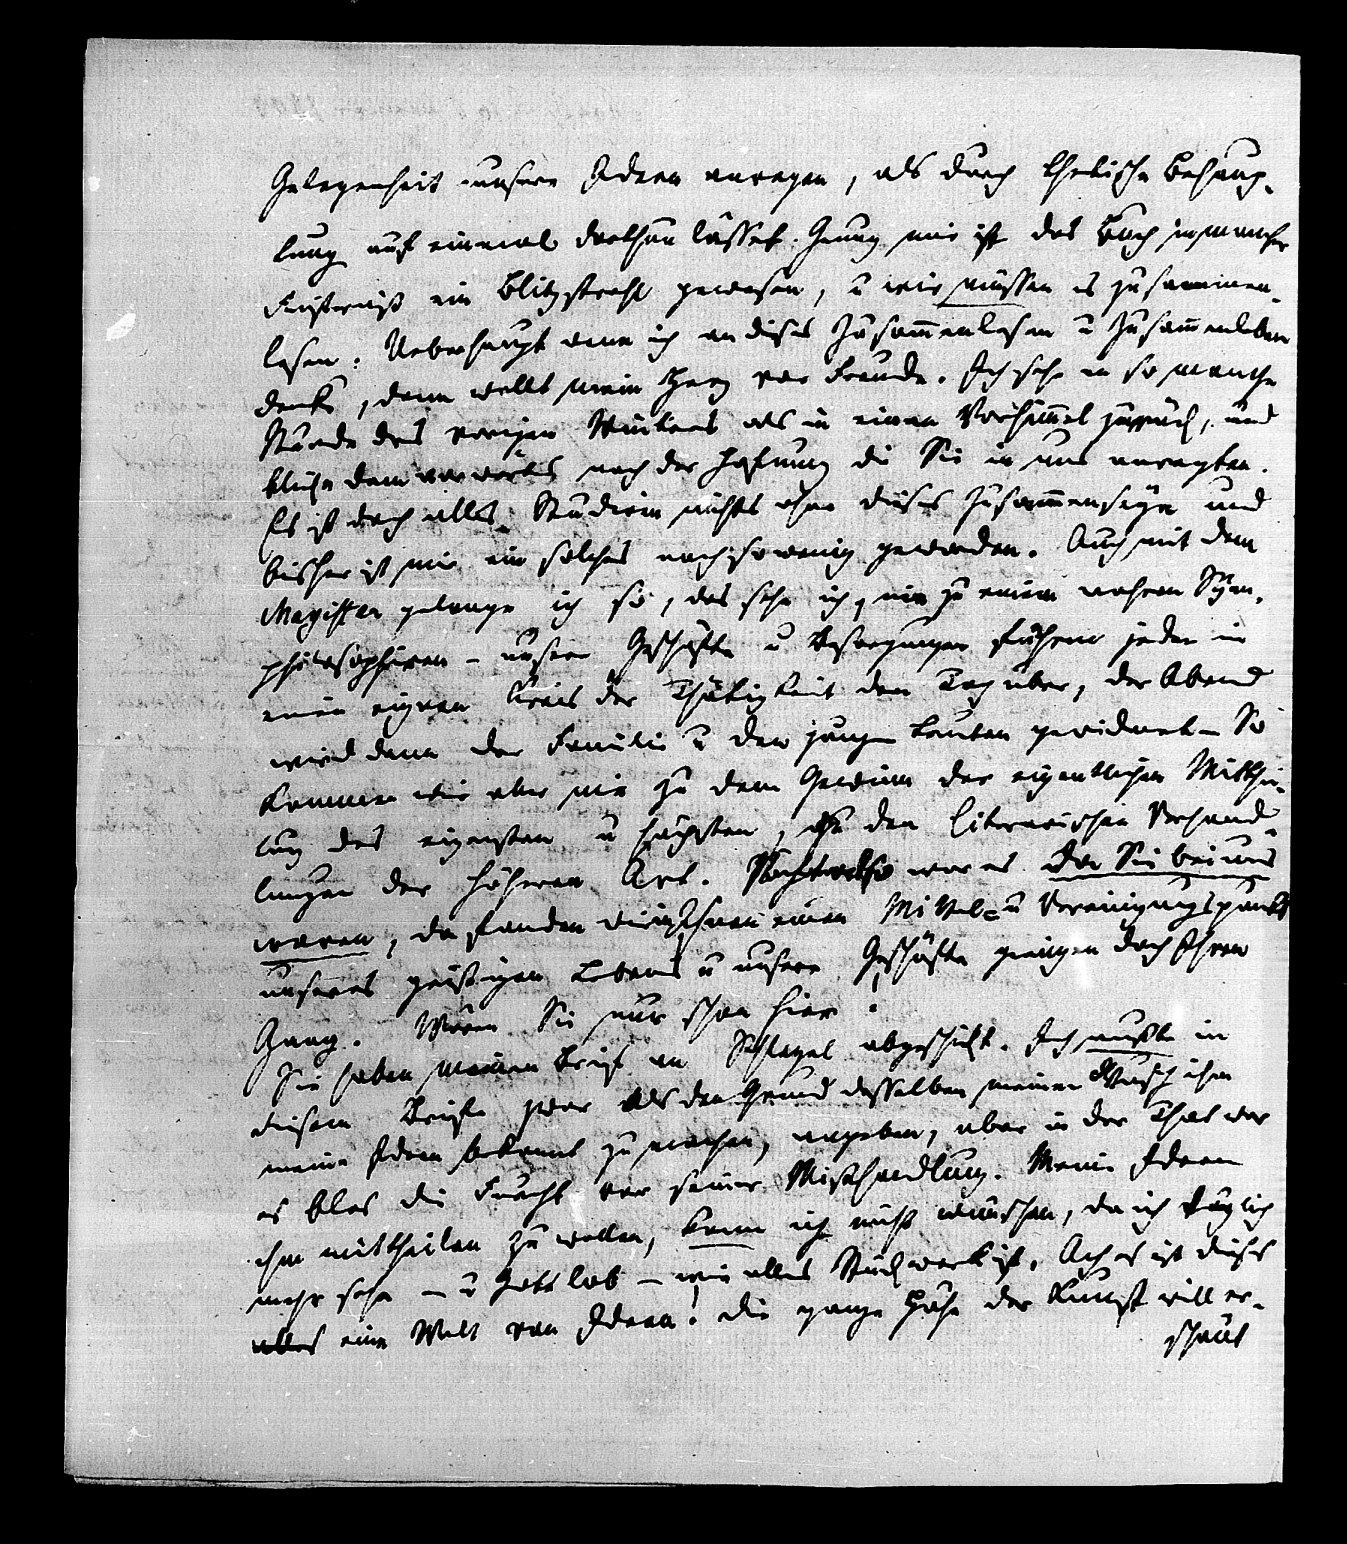 Gelegenheit unsere Ideen anregen, als durch Ehelische Behaup-
tung auf einmal darthun lässet. Genug mir ist das Buch in mancher
Finsterniß ein Blitzstrahl gewesen, u wir müssen es zusammen-
lesen. Ueberhaupt wenn ich an dieses Zusammenlesen u Zusammenleben
denke, dann wallt mein Herz vor Freude. Ich sehe in so manche
Stunde des vorigen Winters als in einen Vorhimmel zurück, und
blicke dann vorwärts nach der Hofnung die Sie in uns anregten.
Es ist doch alles Studiren nichts ohne dieses Zusammenseyn und
bisher ist mir ein solches noch so wenig geworden. Auch mit dem
Magister gelange ich so, das sehe ich, nie zu einem wahren Sym-
philosophiren – unsere Geschäfte u Besorgungen führen jeden in
einen eignen Kreis der Thätigkeit den Tag über, der Abend
wird dann der Familie u den jungen Leuten gewidmet – So
kommen wir aber nie zu dem Gewinn der eigentlichen Mitthei-
lung des eigensten u höchsten, zu den literarischen Verhand-
lungen der höheren Art. war es da Sie bei uns
waren, da fanden wir in Ihnen einen Mittel- u Vereinigungspunkt
unseres geistigen Lebens u unsere Geschäfte giengen doch Ihren
Gang. Wären Sie nur schon hier!
Sie haben meinen Brief an Schlegel abgeschickt. Ich mußte in
diesem Briefe zwar als den Grund desselben meinen Wunsch ihm
meine Ideen bekannt zu machen, angeben, aber in der That war
es blos die Furcht vor seiner Mishandlung. Meine Ideen
ihm mittheilen zu wollen, kann ich nicht wünschen, da ich täglich
mehr sehe – u Gott lob – wie alles Stückwerk ist. Ach es ist dieses
alles eine Welt von Ideen! die ganze Höhe der Kunst will er-
schaut